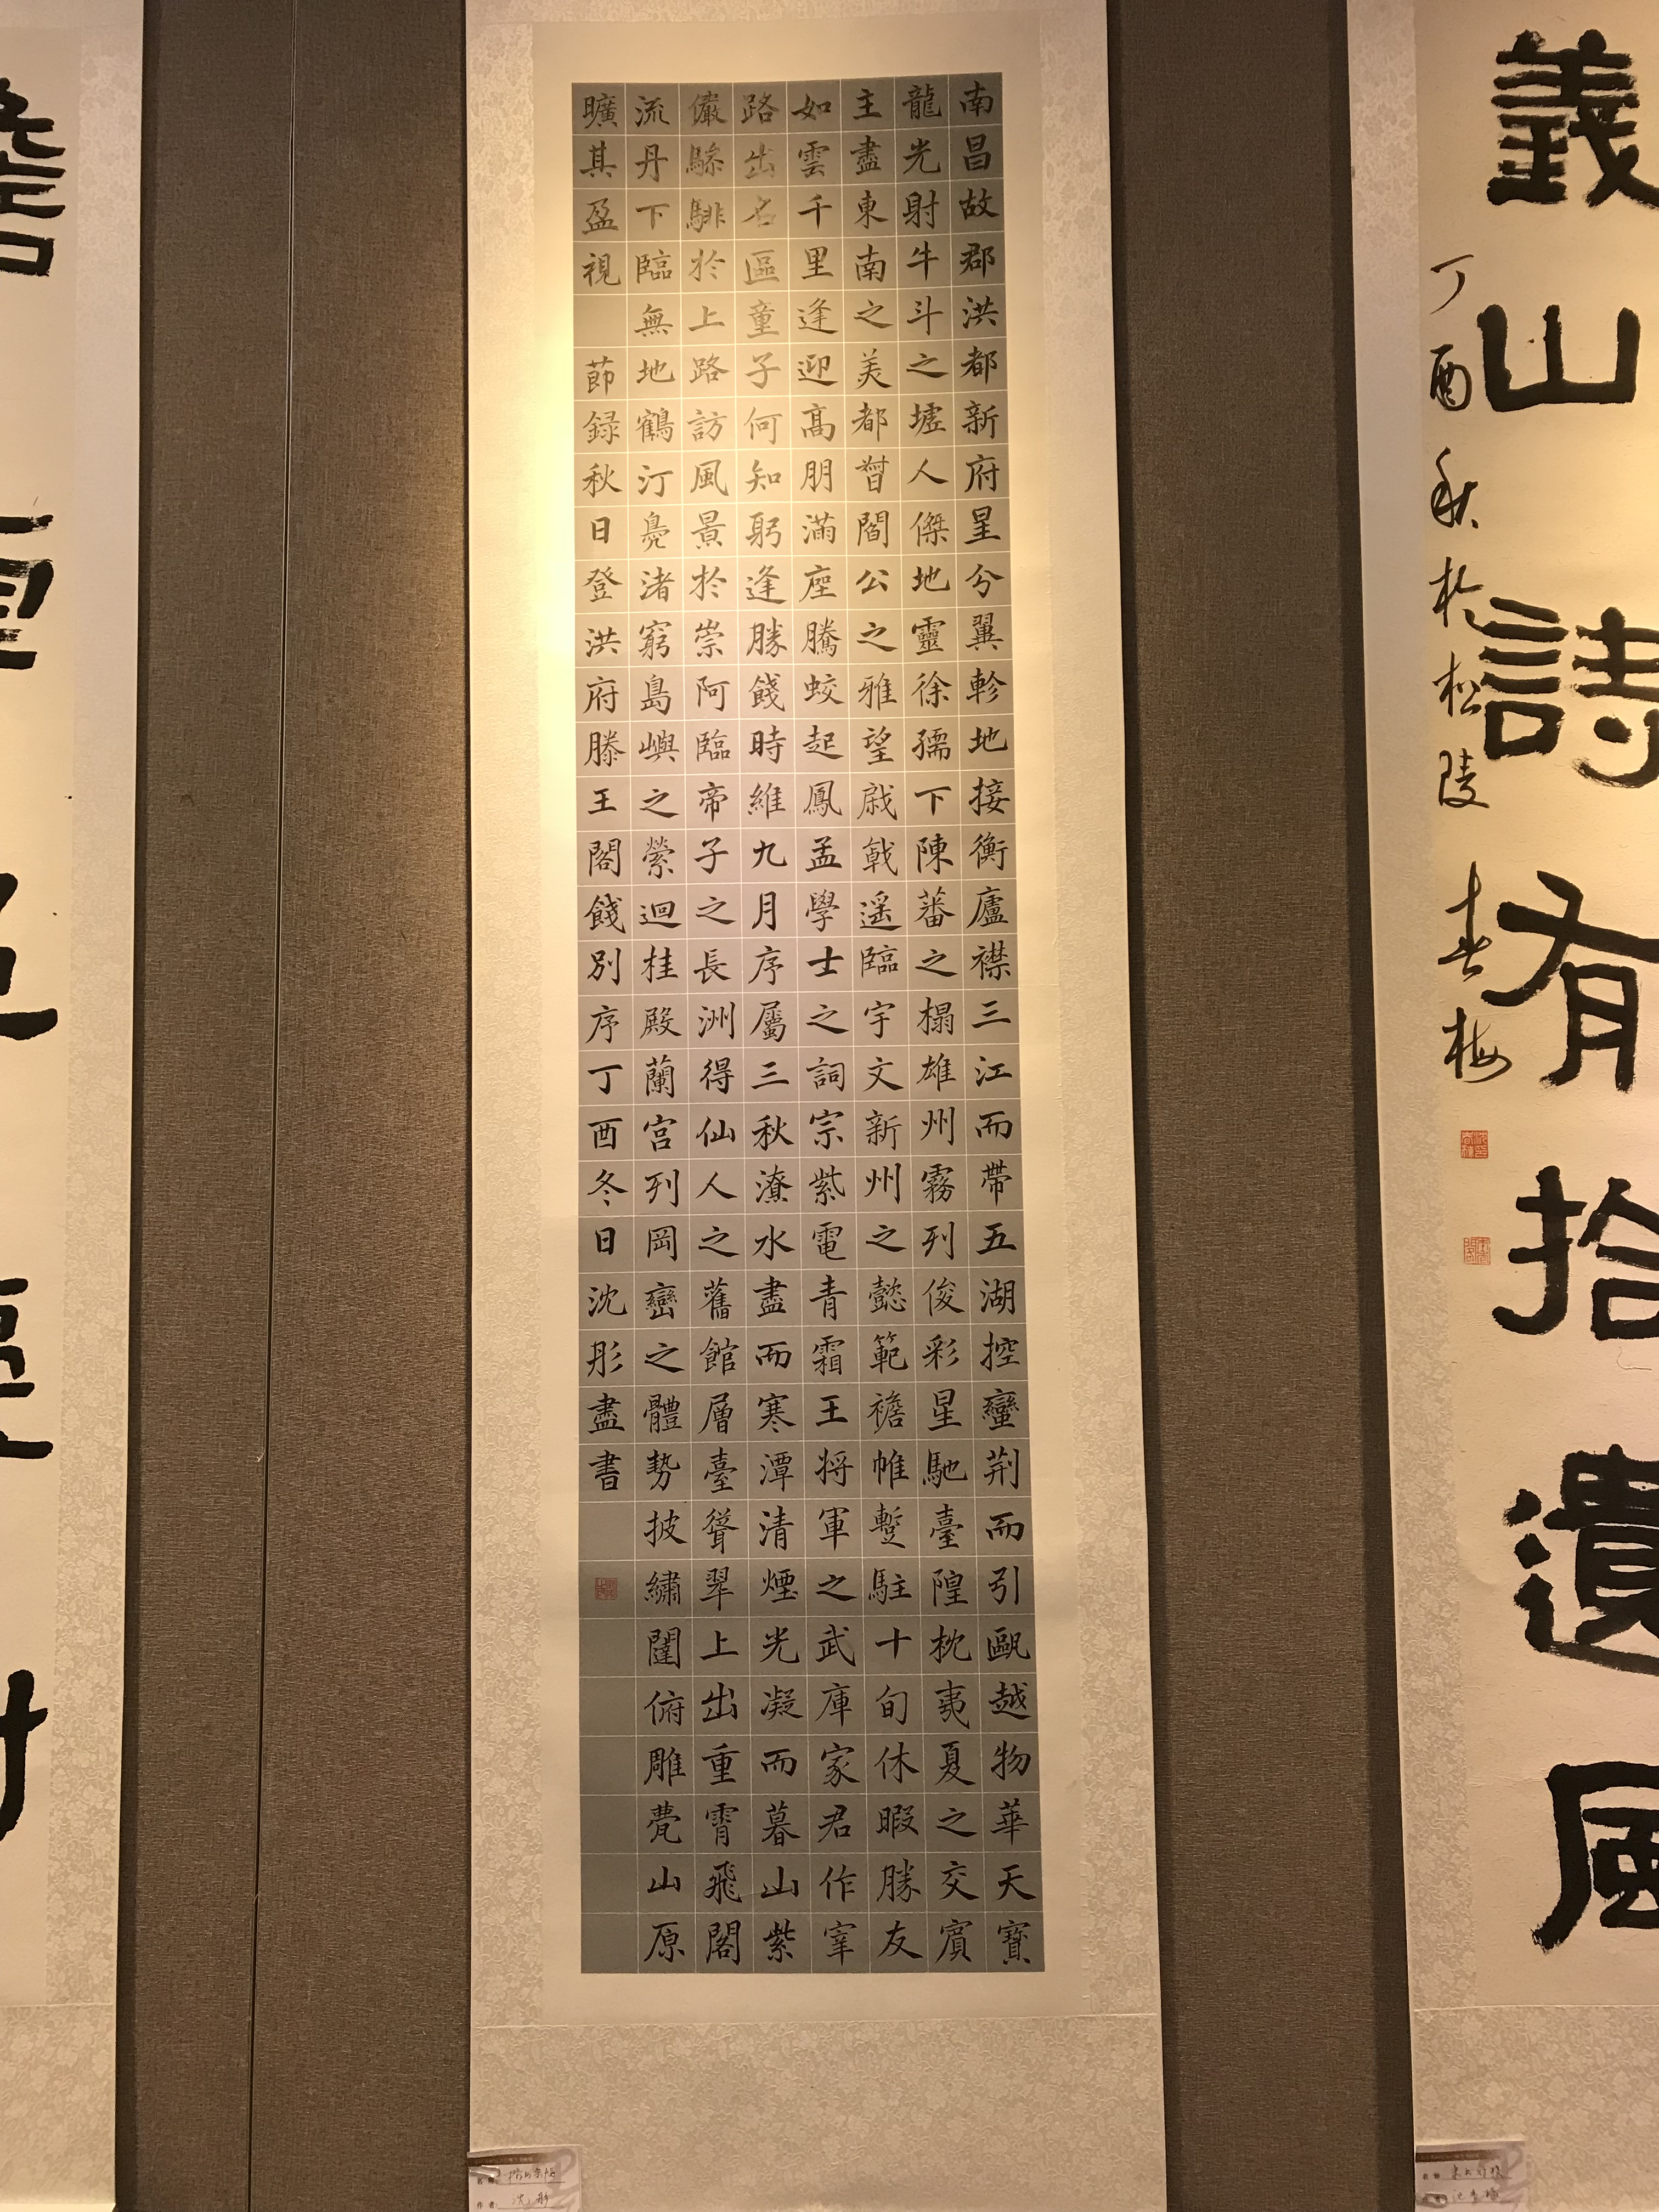 義山詩有拾遺風
丁酉秋於松陵 春梅
南昌故郡洪都新府星分翼軫地接衡廬襟三江而帶五湖控蠻荊而引甌越物華天寶
龍光射牛斗之墟人傑地靈徐孺下陳蕃之榻雄州霧列俊彩星馳臺隍枕夷夏之交賓
主盡東南之美都督閻公之雅望戚戟遥臨宇文新州之懿範襜帷暫駐十旬休暇勝友
如雲千里逢迎高朋滿座騰蛟起鳳孟學士之詞宗紫電青霜王將軍之武庫家君作宰
路出名區童子何知躬逢勝餞時維九月序屬三秋潦水盡而寒潭清煙光凝而暮山紫
儼驂騑於上路訪風景於崇阿臨帝子之長洲得仙人之舊館層臺聳翠上出重霄飛閣
流丹下臨無地鶴汀鳧渚窮島嶼之縈迴桂殿蘭宮列岡巒之體勢披繡闥俯雕甍山原
曠其盈視 節録秋日登洪府滕王閣餞別序丁酉冬日沈彤盡書
作者 沈彤